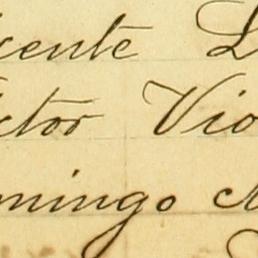 icente L
ictor Vio
omingo M